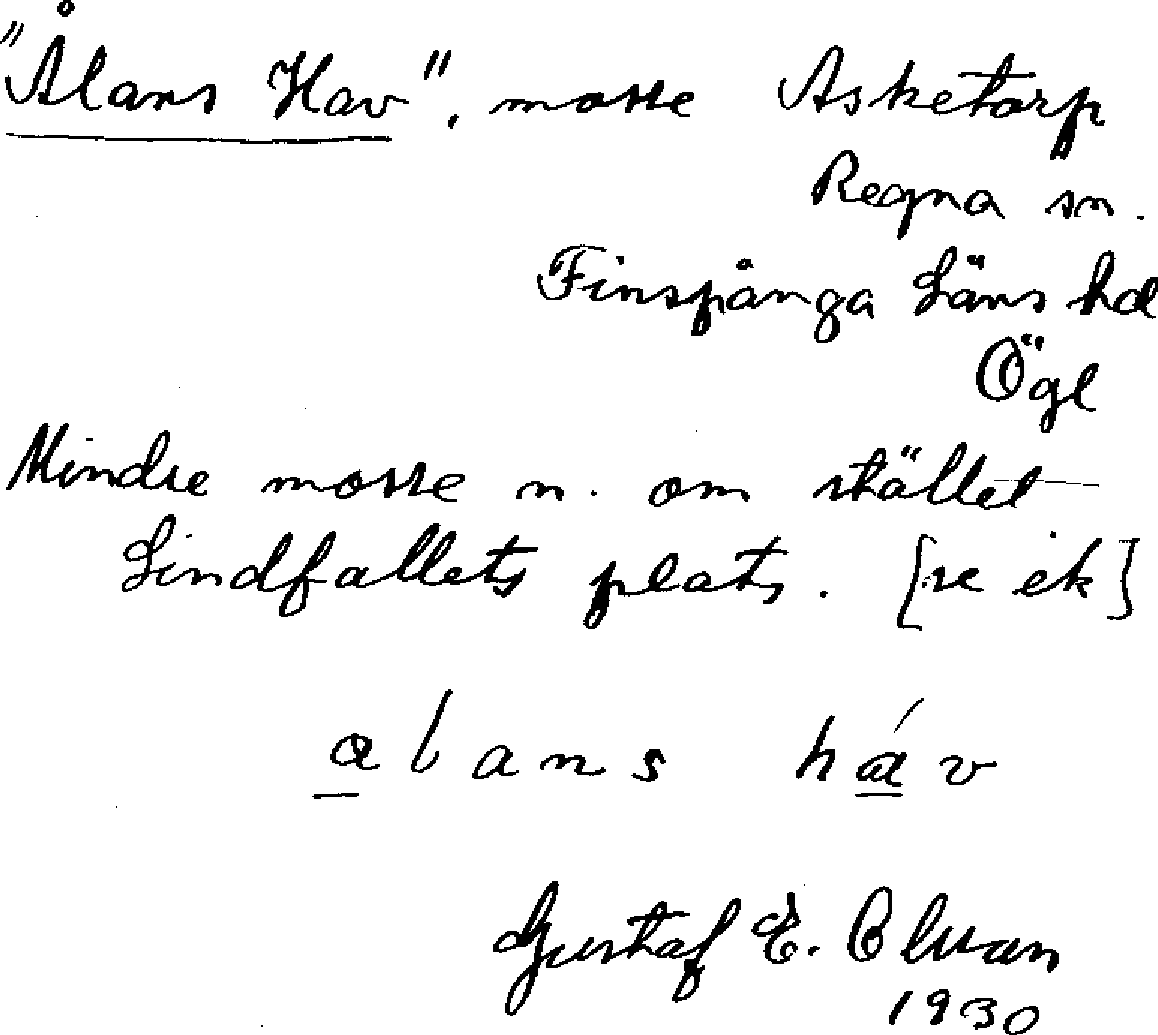 "Ålans Hav", mosse Asketorp
Regna sn.
Finspånga Läns hd
Ögl
Mindre mosse n. om stället
Lindfallets plats. [se ek]
a l a n s h á v
Gustaf E. Olsson
1930